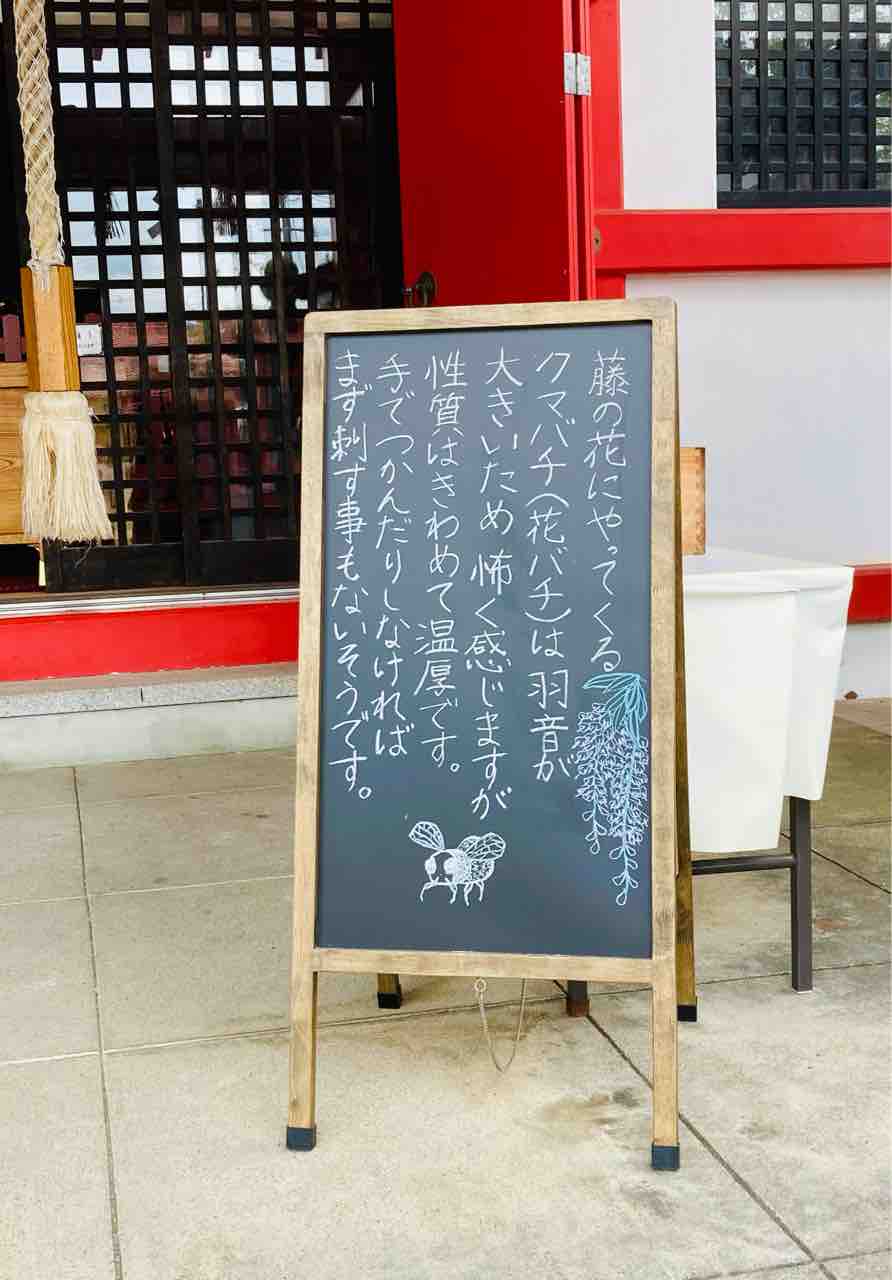 藤の花にやってくる
クマバチ(花バチ)は羽音が
大きいため怖く感じますが
性質はきわめて温厚です。
手でつかんだりしなければ
まず刺す事もないそうです。